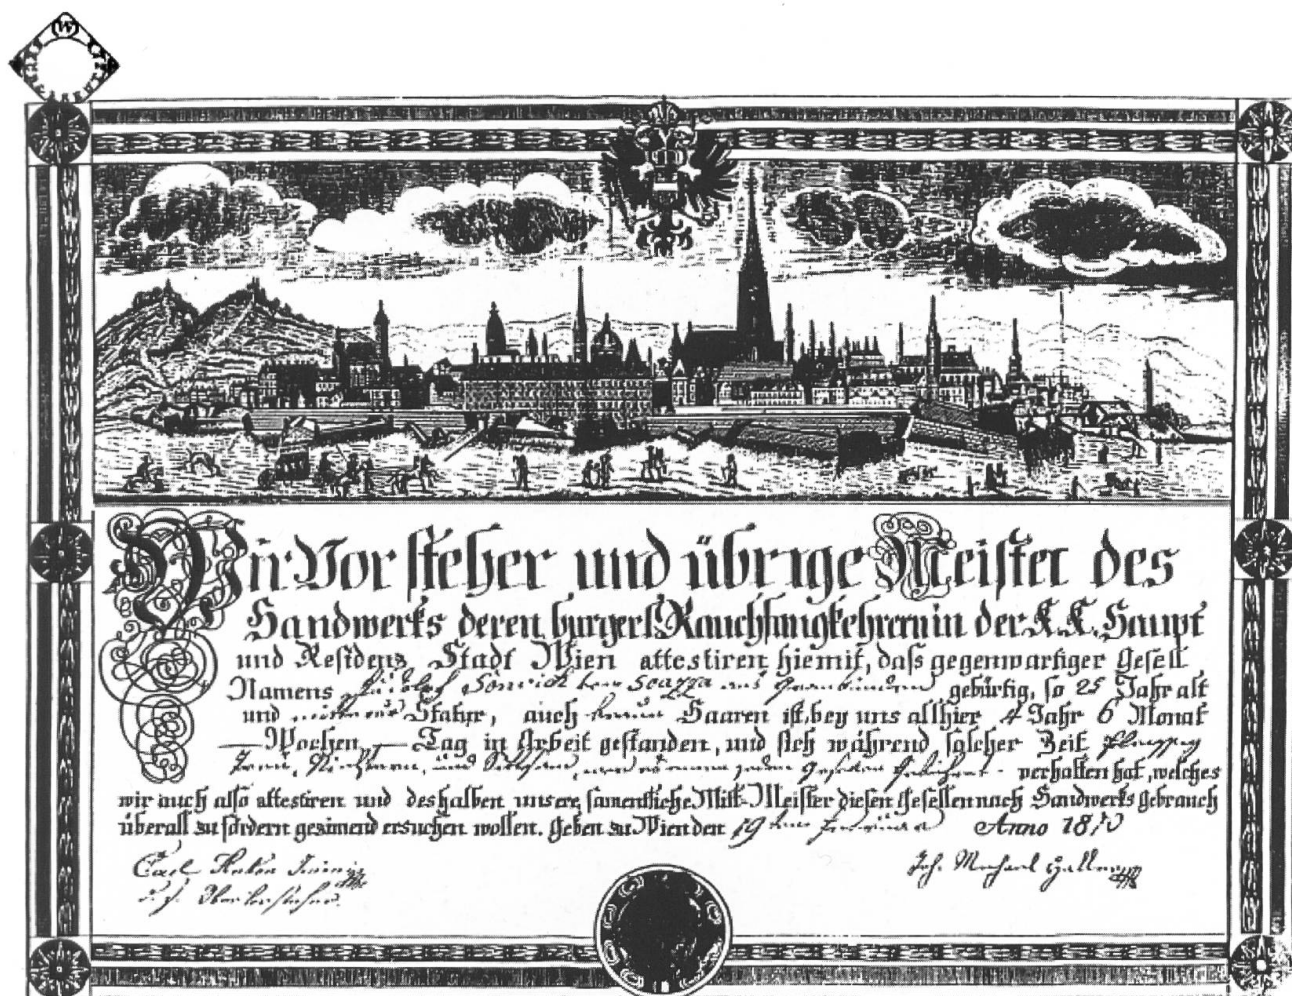 W
Wir Vorsteher und übrige Meister des
Handwerks deren burgerl. Rauchfangkehrern in der K. K. Haupt
und Residenz Stadt Wien attestiren hiemit, dass gegenwartiger Gesell
Namens von Soazza aus Graubünden gebürtig, so 25 Jahr alt
und Statur, auch braun Haaren ist, bey uns allhier 4 Jahr 6 Monat
— Wochen, — Tag in Arbeit gestanden, und sich während solcher Zeit
Treu, und wie es einem jeden Gesellen verhalten hat, welches
wir auch also attestiren und deshalben unsere samentliche Mitt-Meister diesen Gesellen nach Handwerks Gebrauch
überall zu fördern gezimend ersuchen wollen. Geben zu Wien den 19 Anno 18
Carl
Joh. Michael